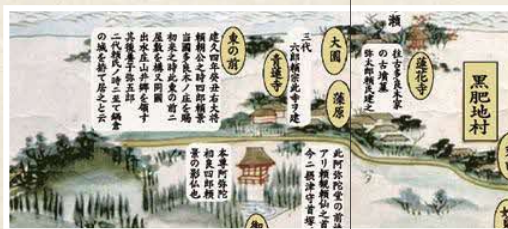 黒肥地村
瀬
蓮花寺
往古多良木家
の古墳墓
弥太郎頼氏建之
大園
藤原
三代
六郎頼宗此寺ヲ建
青蓮寺
東の前
建久四年癸丑右大将
頼朝公之時四郎頼景
当國多良木ノ庄を賜
初来之時此東の前ニ
屋敷を構又同國
出水庄山井郷を領す
其後養子弥五郎
二代頼氏ノ時ニ至て鍋倉
の城を拵て居之と云
此阿弥陀堂の前
アリ頼観頼仙之首
今ニ摂津守首塚
本尊阿弥陀
相良四郎頼
景の影仏也
御